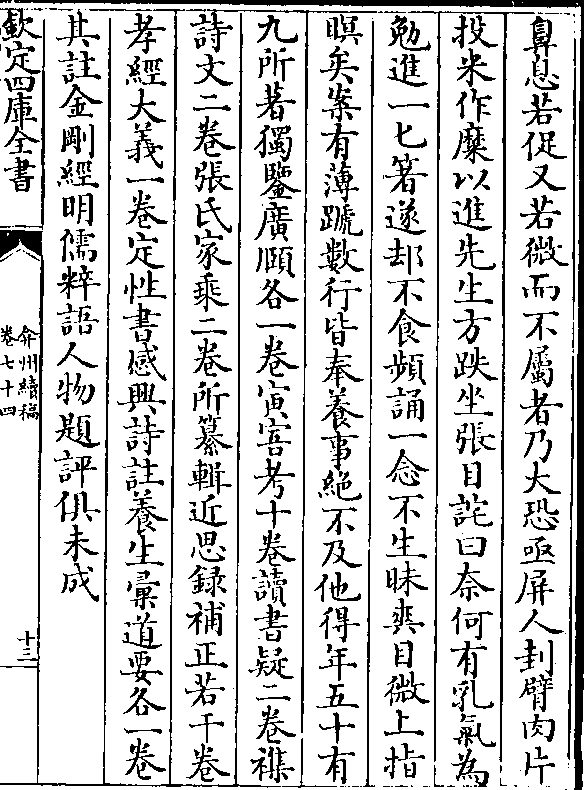 鼻息若促又若微而不屬者乃大恐亟屏人刲臂肉片
投米作糜以進先生方趺坐張目詫曰奈何有乳氣為
勉進一匕箸遂却不食頻誦一念不生昧爽目微上指
瞑矣案有薄蹏數行皆奉養事絶不及他得年五十有
九所著獨鑒廣頤各一卷寅害考十卷讀書疑二卷襍
詩文二卷張氏家乘二卷所纂輯近思録補正若干卷
孝經大義一卷定性書感興詩註養生彚道要各一卷
其註金剛經明儒粹語人物題評俱未成
欽定四庫全書
弇州續稿
卷七十四
十三